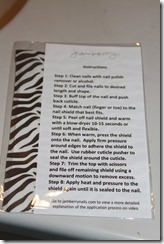 Jamberry
Instructions
Step 1: Clean nails with nail polish
remover or alcohol.
Step 2: Cut and file nails to desired
length and shape.
Step 3: Buff top of the nail and push
back cuticle.
Step 4: Match nail (finger or toe) to the
nail shield that best fits.
Step 5: Peel off nail shield and warm
with a blow-dryer 10-15 seconds or
until soft and flexible.
Step 6: When warm, press the shield
onto the nail. Apply firm pressure
around edges to adhere the shield to
the nail. Use rubber cuticle pusher to
seal the shield around the cuticle.
Step 7: Trim the top with scissors
and file off remaining shield using a
downward motion to remove excess.
Step 8: Apply heat and pressure to the
shield again until it is sealed to the nail.
Go to jamberrynails.com to view a more detailed
explanation of the application process on video